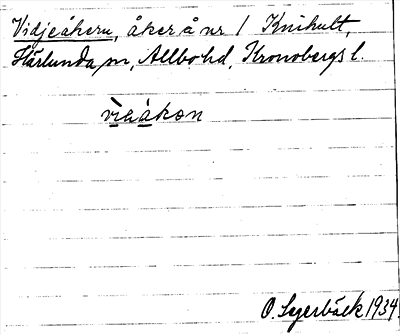 Vidjeåkern, åker å nr 1 Knihult,
Härlunda sn, Allbo hd, Kronobergs l.
O. Segerbäck 1934.